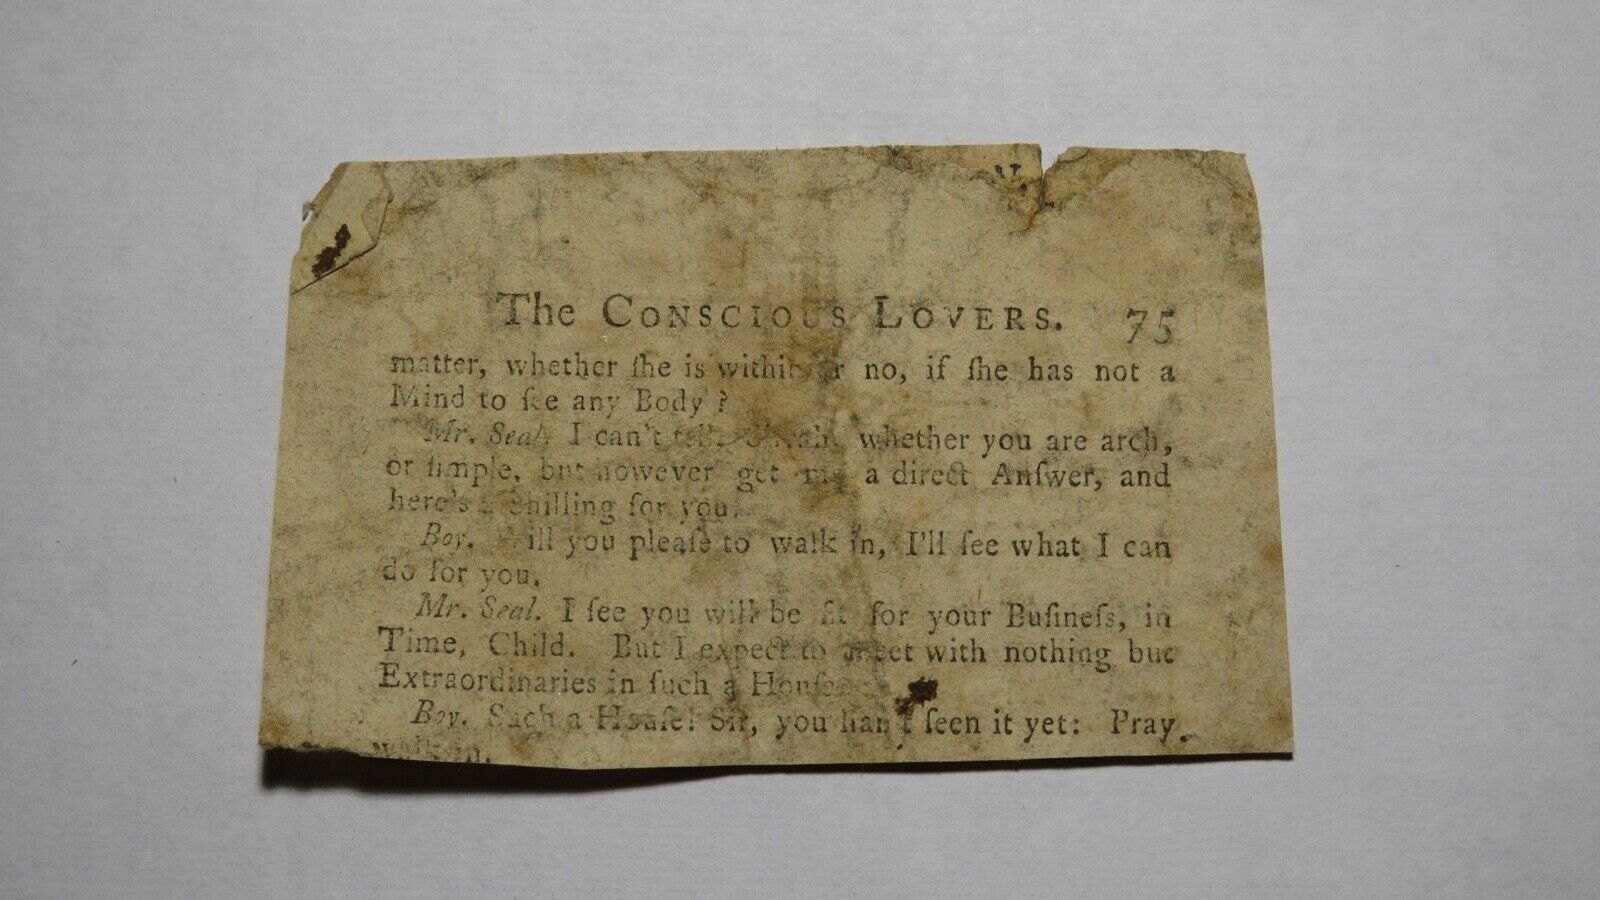 N.
The CONSCIOUS LOVERS. 75
matter, whether ſhe is within or no, if ſhe has not a
Mind to ſee any Body?
Mr. Seal. I can't tell, whether you are arch,
or ſimple, but however get me a direct Anſwer, and
here's a Shilling for you.
Boy. Will you pleaſe to walk in, I'll ſee what I can
do for you.
Mr. Seal. I ſee you will be fit for your Buſineſs, in
Time, Child. But I expect to meet with nothing but
Extraordinaries in ſuch a Houſe
Boy. Such a Houſe! Sir, you han't ſeen it yet: Pray
walk in.